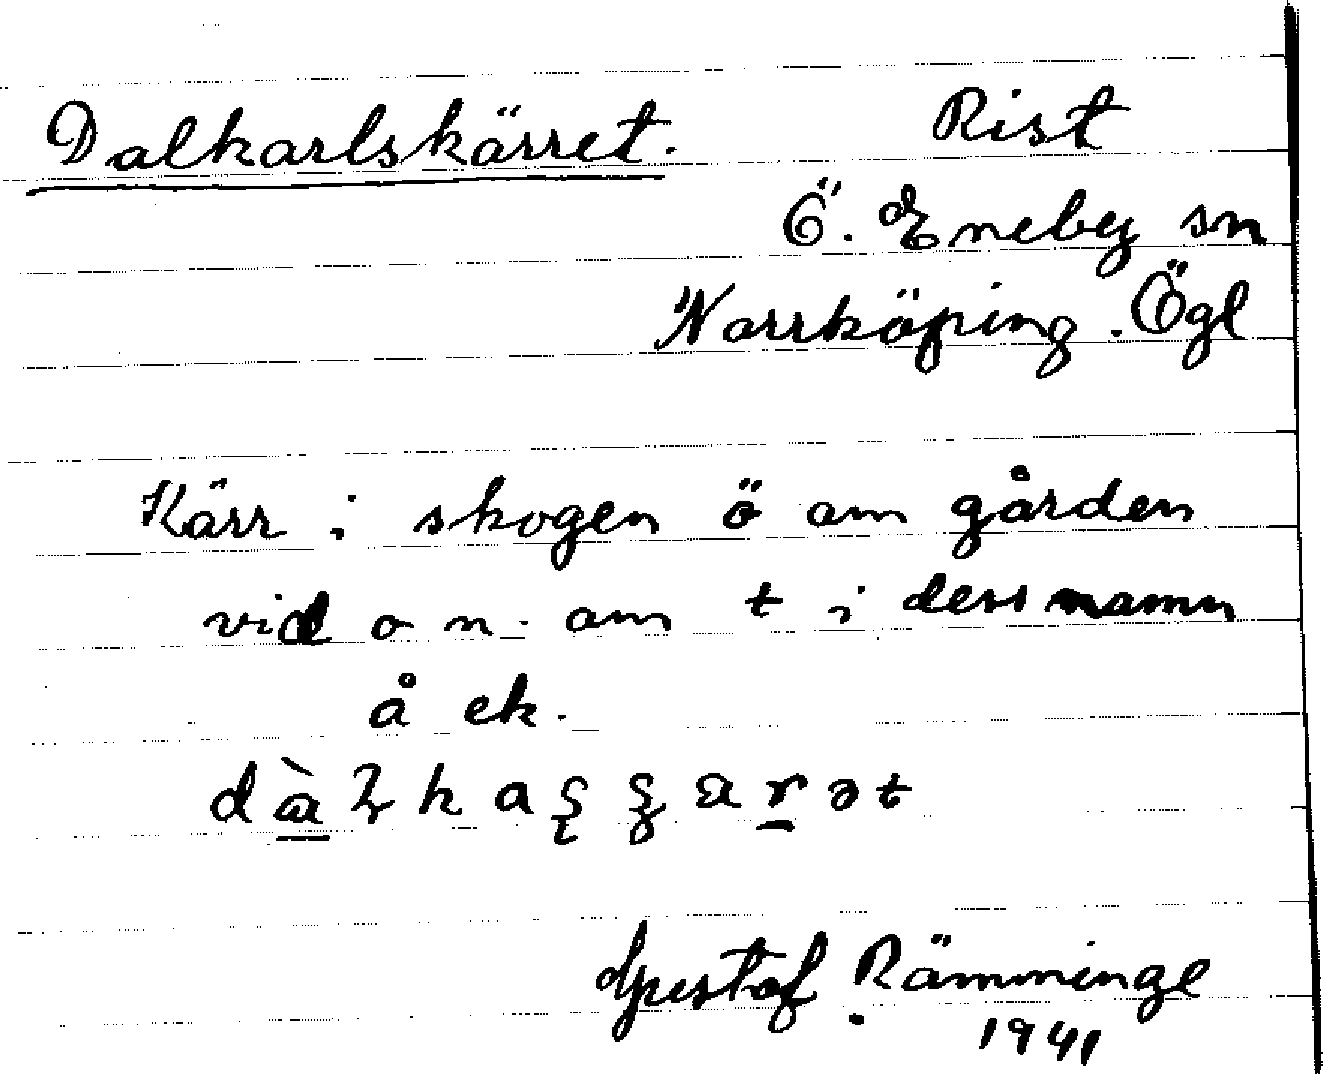 Dalkarlskärret. Rist
Ö. Eneby sn
Norrköping. Ögl
Kärr i skogen ö om gården
vid o n. om t i dess namn
å ek.
Gustaf Rämminge
1941